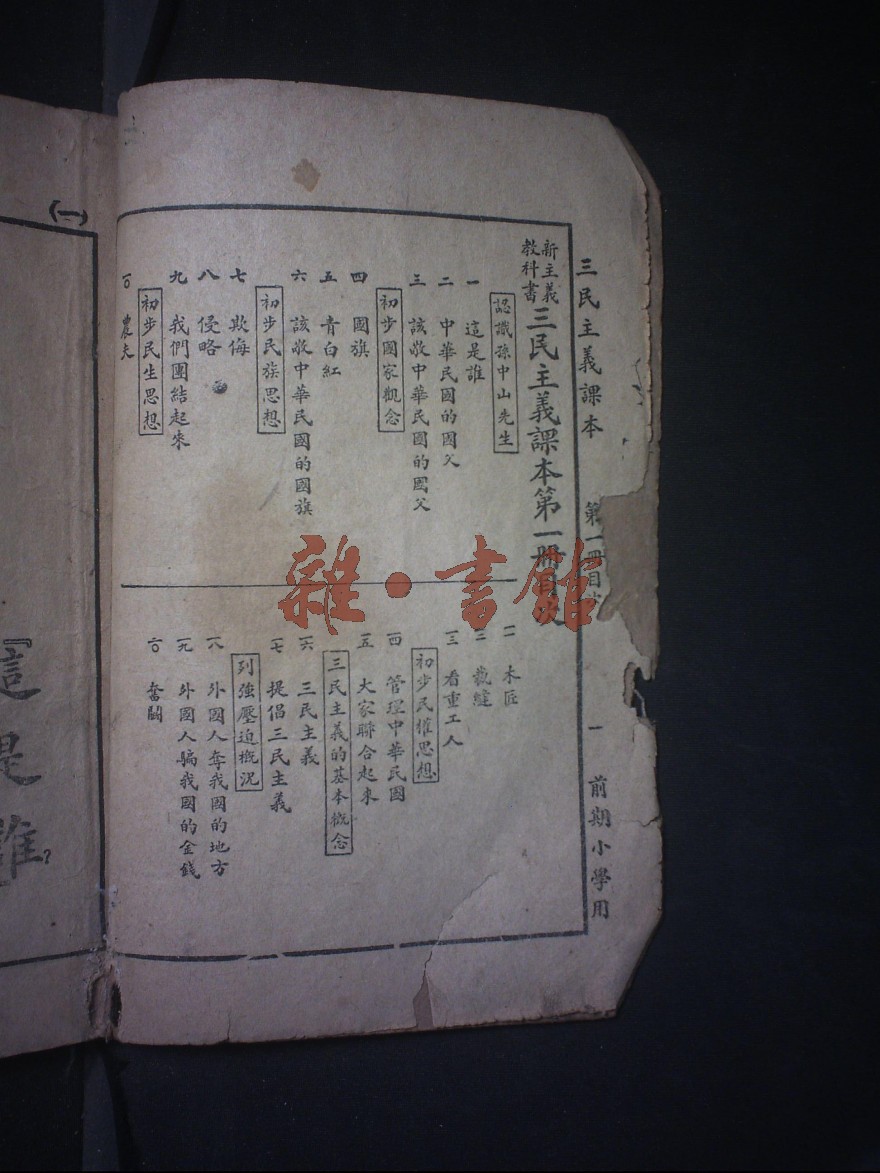 三民主義課本 第一冊目
一 前期小學用
新主義教科書 三民主義課本第一冊目次
認識孫中山先生
一 這是誰
二 中華民國的國父
三 該敬中華民國的國父
初步國家觀念
四 國旗
五 青白紅
六 該敬中華民國的國旗
初步民族思想
七 欺侮
八 侵略
九 我們團結起來
初步民生思想
一〇 農夫
一一 木匠
一二 裁縫
一三 看重工人
初步民權思想
一四 管理中華民國
一五 大家聯合起來
三民主義的基本概念
一六 三民主義
一七 提倡三民主義
列強壓迫概況
一八 外國人奪我國的地方
一九 外國人騙我國的金錢
二〇 奮鬬
(一)
『這是誰?
雜·書館